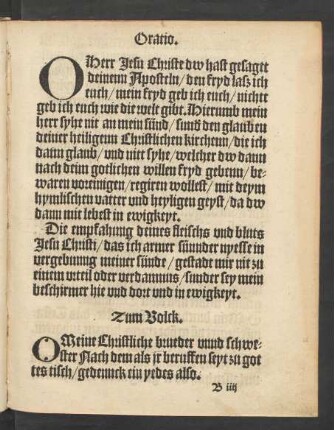 Oratio.
O Herr Jesu Christe dw hast gesaget
deinenn Aposteln / den fryd lasz ich
euch / mein fryd geb ich euch / nichtt
geb ich euch wie die welt gibt. Hierumb mein
herr syhe nit an mein sünd / sund den glauben
deiner heiligenn Christlichen kirchenn / die ich
dann glaub / und niet syhe / welcher dw dann
nach deim gotlichen willen fryd gebenn / be-
waren voreinigen / regiren wollest / mit deym
hymlischen vatter und heyligen geyst / da dw
dann mit lebest in ewigkeyt.
Die empfahung deines fleischs und bluts
Jesu Christi / das ich armer sünnder nyesse in
vergebunng meiner sünde / gestadt mir nit zu
einem urteil oder verdamnus / sunder sey mein
beschirmer hie und dort und in ewigkeyt.
Zum Volck.
O Meine Christliche brueder unnd schwe-
ster Nach dem als jr beruffen seyt zu got
tes tisch / gedennck ein yedes also.
B iiij